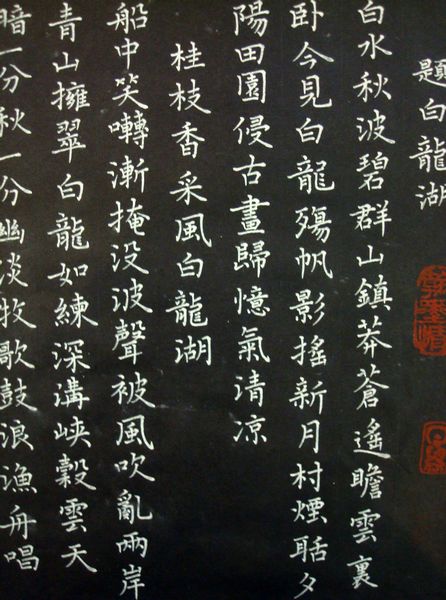 題白龍湖
白水秋波碧群山鎮莽蒼遙瞻雲裏
卧今見白龍殤帆影搖新月村煙聒夕
陽田園侵古畫歸憶氣清凉
桂枝香采風白龍湖
船中笑囀漸掩没波聲被風吹亂兩岸
青山擁翠白龍如練深溝峽穀雲天
暗一分秋一分幽淡牧歌鼓浪漁舟唱